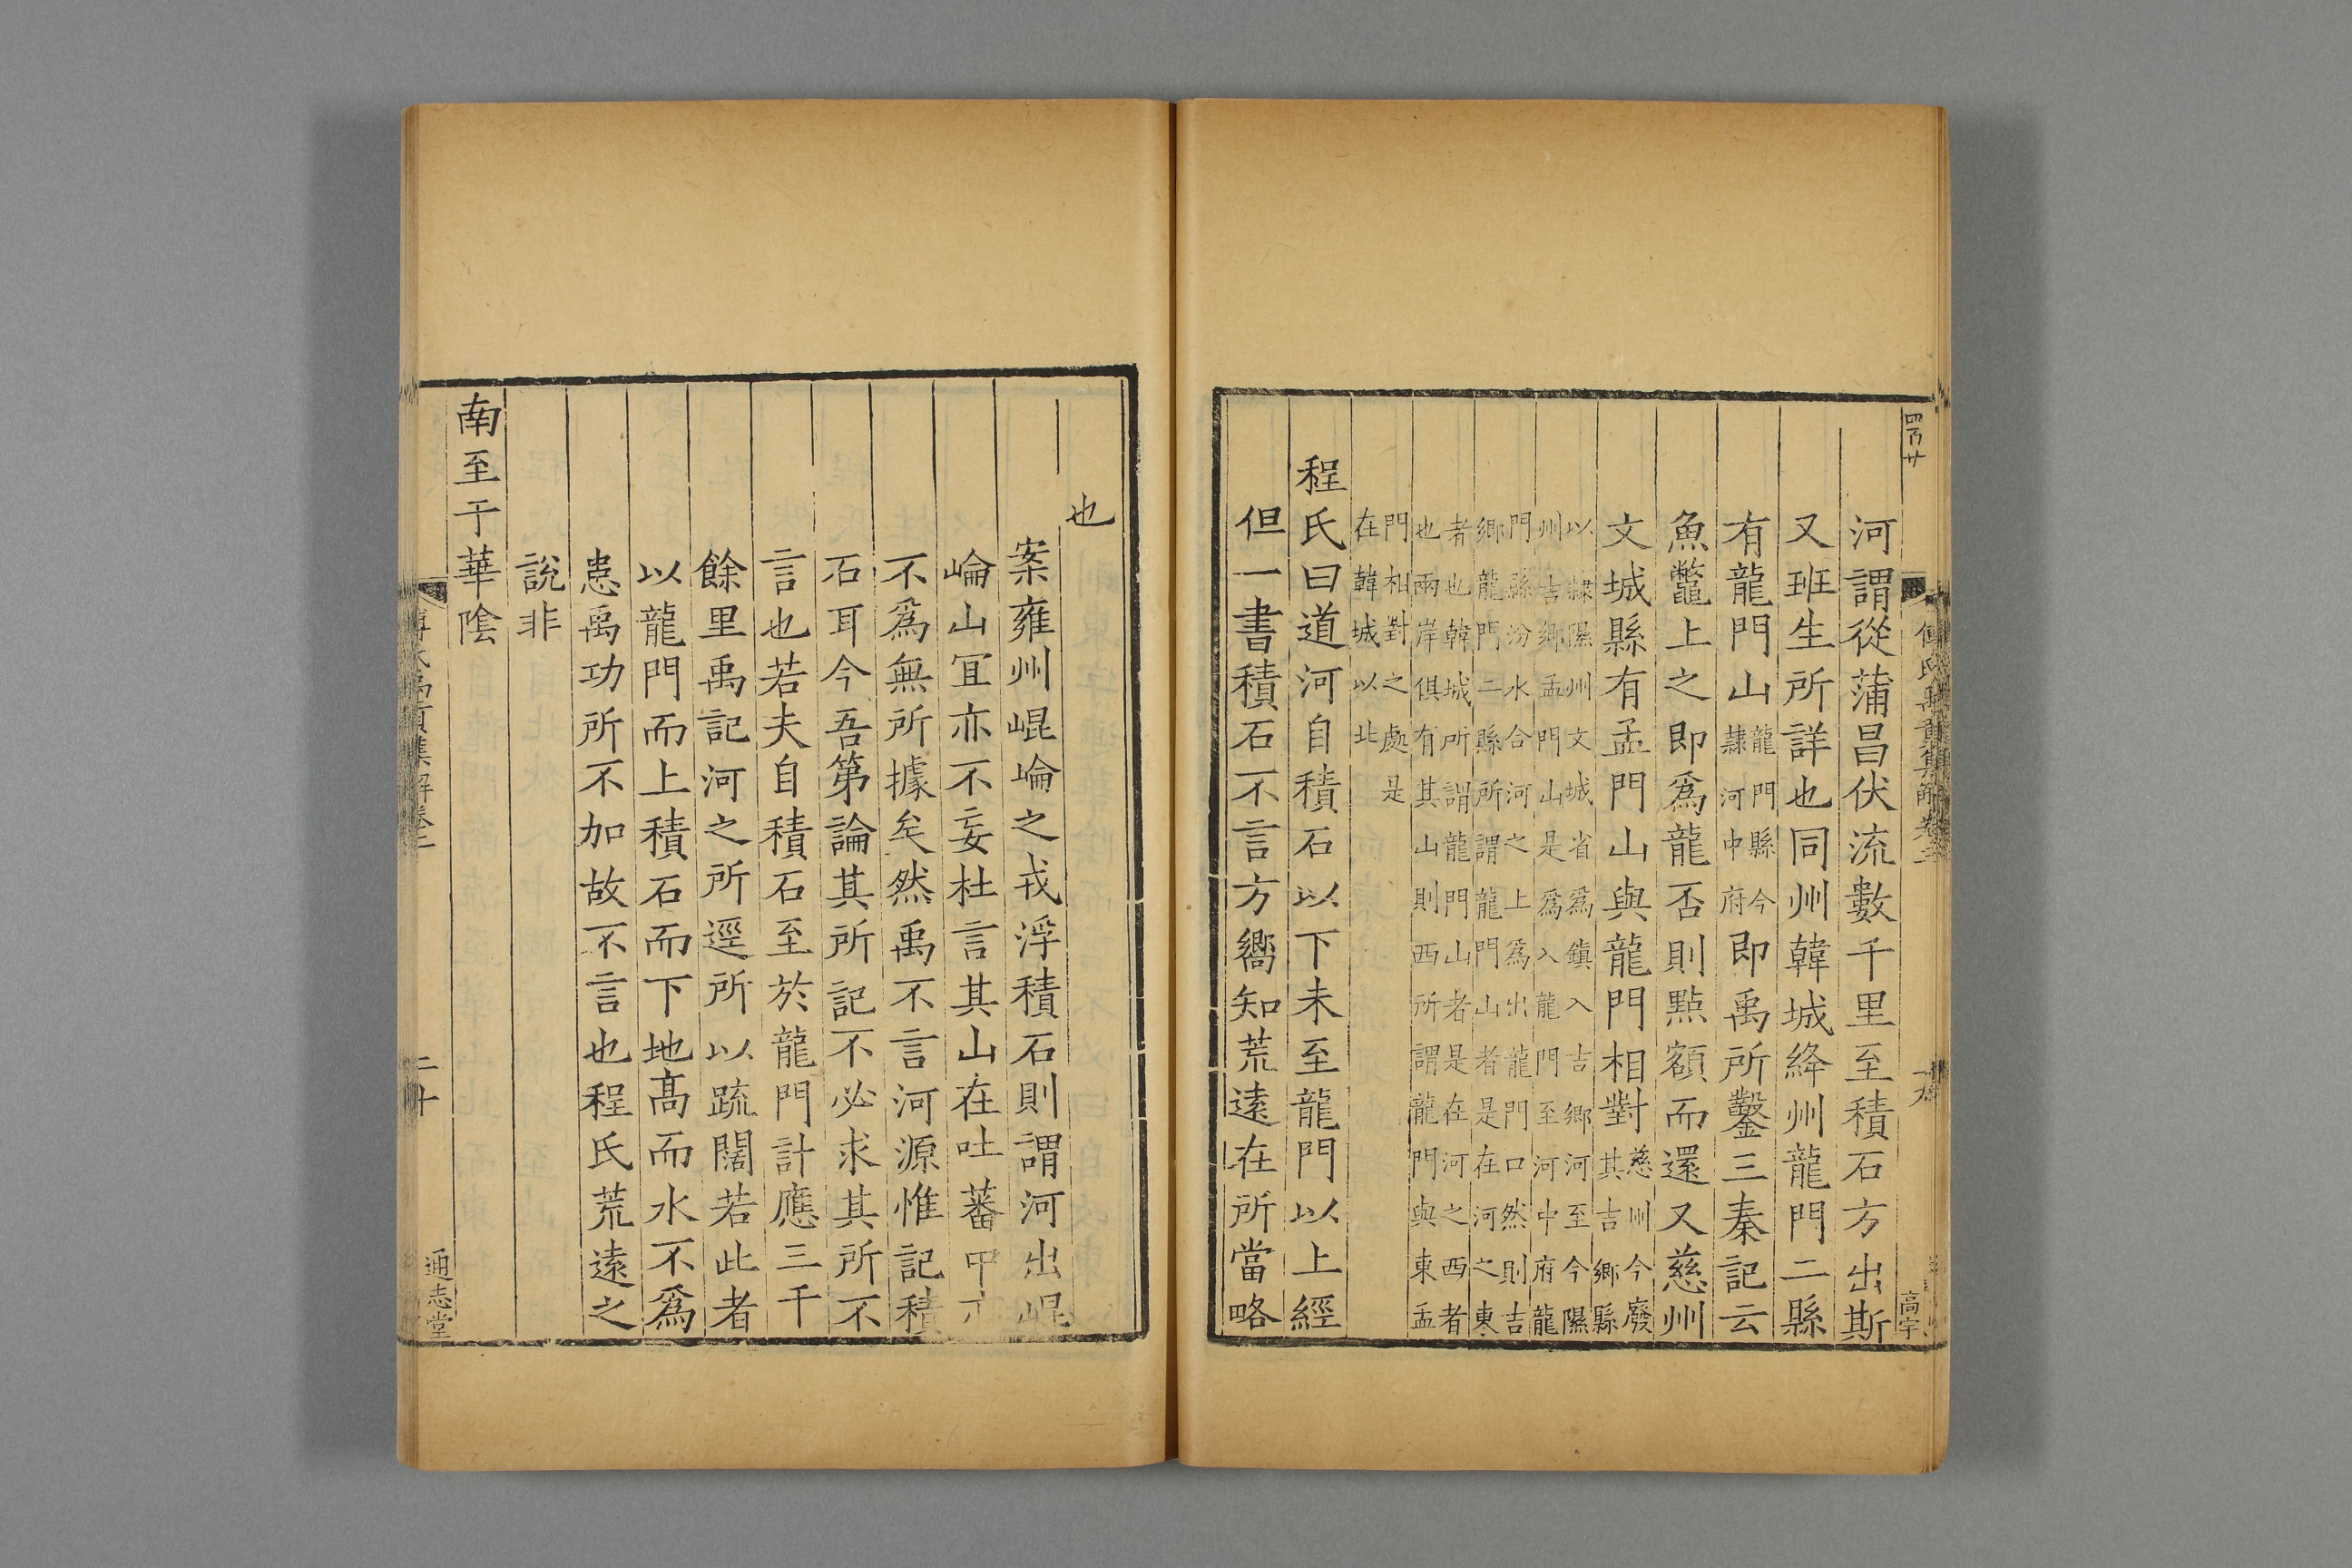 河謂從蒲昌伏流數千里至積石方出斯
又班生所詳也同州韓城絳州龍門二縣
有龍門山龍門縣今隸河中府即禹所鑿三秦記云
魚鼈上之即爲龍否則點額而還又慈州
文城縣有孟門山與龍門相對慈州今廢其吉鄉縣
以隸隰州文城省爲鎮入吉鄉河至今隰
州吉鄉孟門山是爲入龍門至河中府龍
門縣汾水合河之上爲出龍門口然則吉
鄉龍門二縣所謂龍門山者是在河之東
者也韓城所謂龍門山者是在河之西者
也兩岸俱有其山則西所謂龍門與東孟
門相對之處是
在韓城以北
程氏曰道河自積石以下未至龍門以上經
但一書積石不言方嚮知荒遠在所當略
高宇
也
案雍州崐崘之戎浮積石則謂河出崐
崘山宜亦不妄杜言其山在吐蕃中亦
不爲無所據矣然禹不言河源惟記積
石耳今吾第論其所記不必求其所不
言也若夫自積石至於龍門計應三千
餘里禹記河之所逕所以疏闊若此者
以龍門而上積石而下地高而水不爲
患禹功所不加故不言也程氏荒遠之
說非
南至于華陰
二十
通志堂